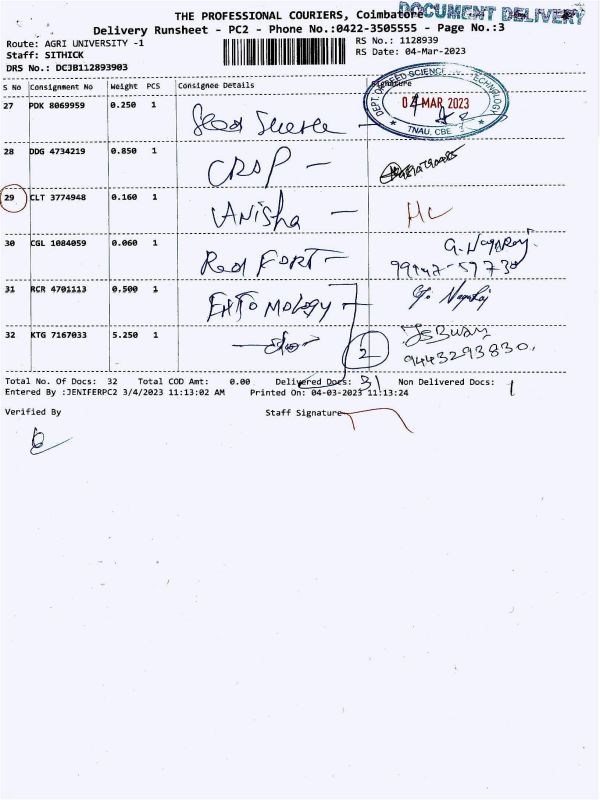 THE PROFESSIONAL COURIERS, Coimbatore
DOCUMENT DELIVERY
Delivery Runsheet - PC2 - Phone No.:0422-3505555 - Page No.:3
Route: AGRI UNIVERSITY -1
RS No.: 1128939
Staff: SITHICK
RS Date: 04-Mar-2023
DRS No.: DCJB112893903
S No Consignment No Weight PCS Consignee Details Signature
27 PDK 8069959 0.250 1 Seed Science -
DEPT. OF SEED SCIENCE TECHNOLOGY
04 MAR 2023
TNAU, CBE - 3
28 DDG 4734219 0.850 1 CROP -
29 CLT 3774948 0.160 1 VANisha - HL
30 CGL 1084059 0.060 1 Red FORT - G. Nagaraj.
99942-57730
31 RCR 4701113 0.500 1 ENTOMOLOGY G. Nagaraj
32 KTG 7167033 5.250 1 -do- 2
9443293830.
Total No. Of Docs: 32 Total COD Amt: 0.00 Delivered Docs: 31 Non Delivered Docs: 1
Entered By :JENIFERPC2 3/4/2023 11:13:02 AM Printed On: 04-03-2023 11:13:24
Verified By Staff Signature